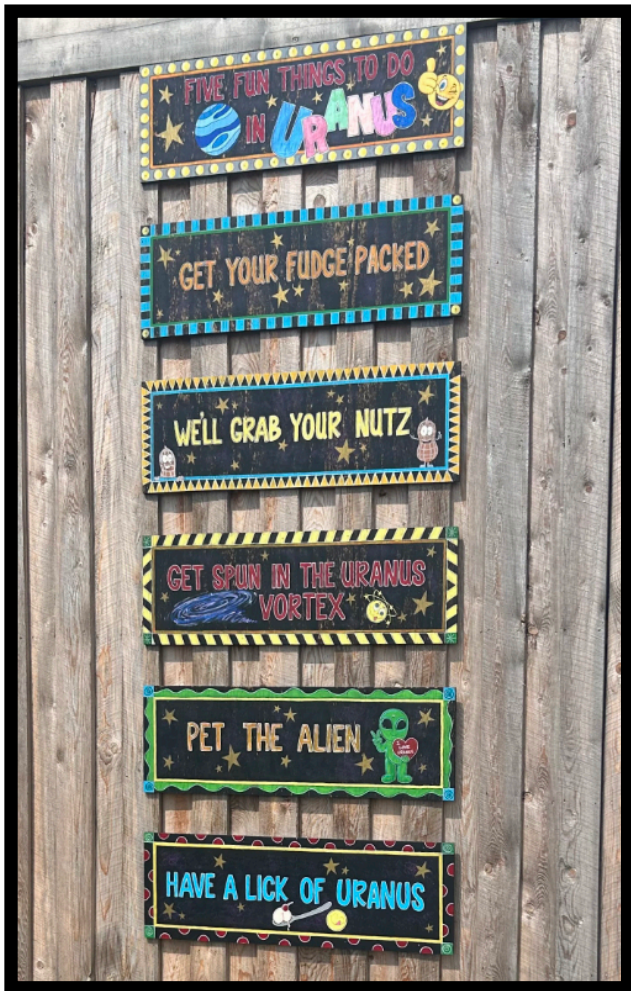 FIVE FUN THINGS TO DO
IN URANUS
GET YOUR FUDGE PACKED
WE'LL GRAB YOUR NUTZ
GET SPUN IN THE URANUS
VORTEX
PET THE ALIEN
I LOVE
URANUS
HAVE A LICK OF URANUS